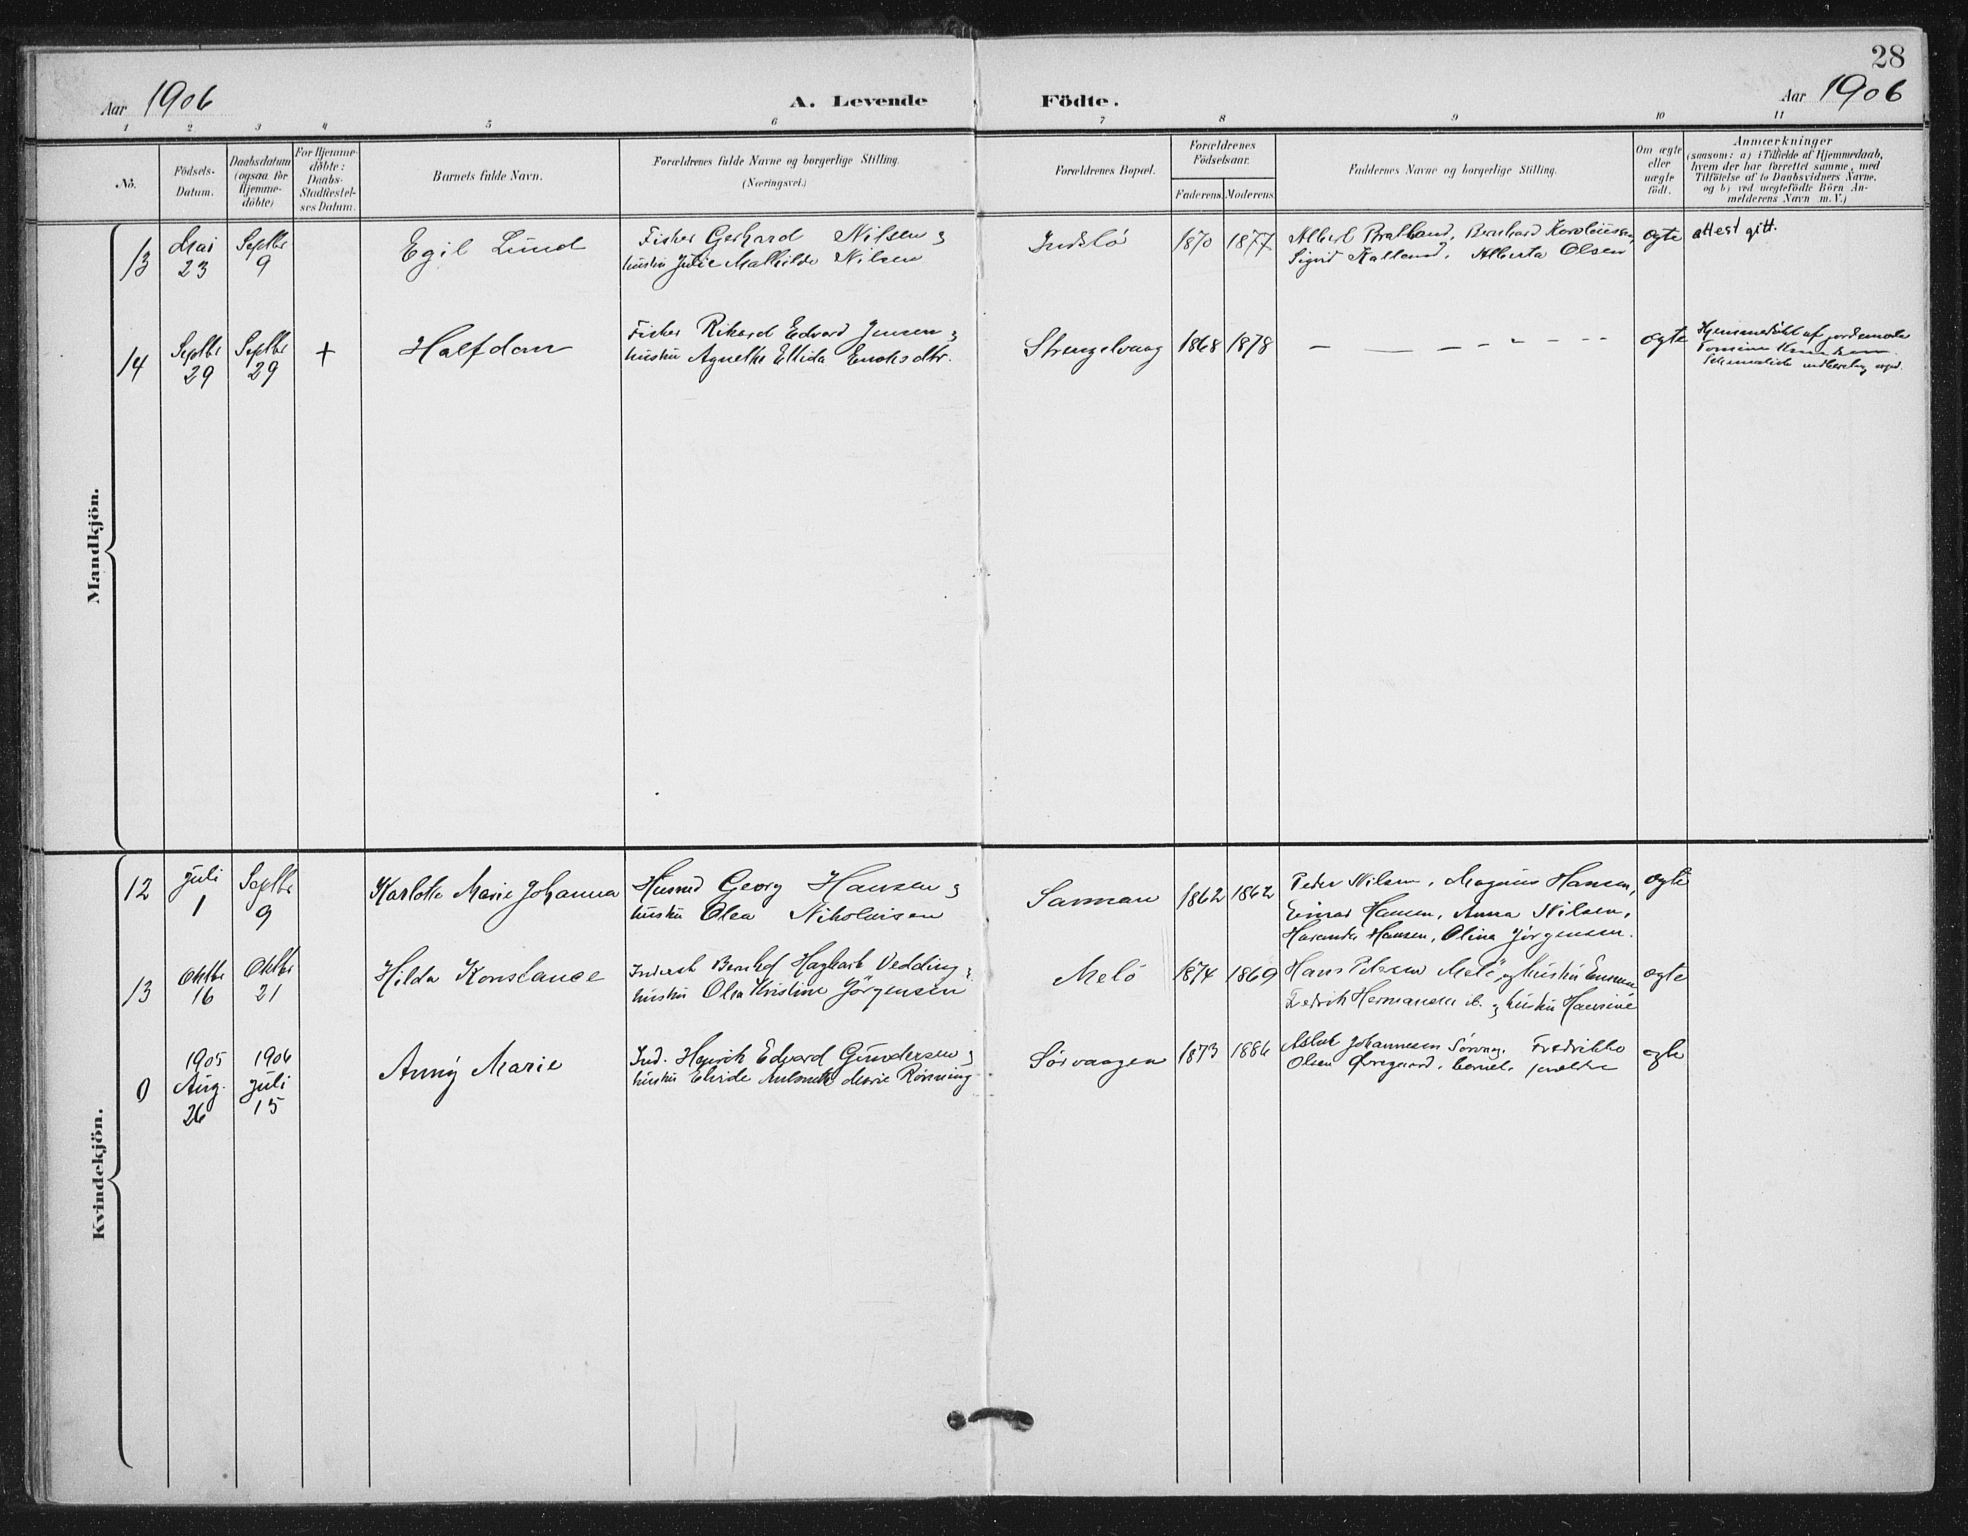 28
Aar 1906 A. Levende Födte. Aar 1906
1 2 3 4 5 6 7 8 9 10 11
No.
Födsels-
Datum.
Daabsdatum
(ogsaa for
Hjemme-
döbte)
For Hjemme-
döbte:
Daabs-
Stadfæstel-
ses Datum.
Barnets fulde Navn.
Forældrenes fulde Navne og borgerlige Stilling.
(Næringsvei.)
Forældrenes Bopæl.
Forældrenes
Födselsaar.
Faderens. Moderens.
Faddernes Navne og borgerlige Stilling.
Om ægte
eller
uægte
födt.
Anmærkninger
(saasom: a) i Tilfælde af Hjemmedaab,
hvem der har forrettet samme, med
Tilföielse af to Daabsvidners Navne,
og b) ved uægtefödte Börn An-
melderens Navn m. V.)
Mandkjön.
13
Mai
23
Septbr
9
Egil Lund
Fisker Gerhard Nilsen og
hustru Julie Mathilde Nilsen
Indslö
1870 1877
Albert Bratland, Bernhard Karoliussen
Sigvid Kalland, Alberta Olsen
ægte
attest gitt.
14
Septbr
29
Septbr
29
+
Halfdan
Fisker Rikard Edvard Jensen og
hustru Agnethe Ellida Enoksdtr.
Strengelvaag
1868 1878
— — — — — — —
ægte
Hjemmedöbt af jordemoder
Kvindekjön.
12
Juli
1
Septbr
9
Karlotte Marie Johanna
Husmd Georg Hansen og
hustru Olea Nikolaisen
Sanman
1862 1862
Peder Nilsen, Magnus Hansen,
Einar Hansen, Anna Nilsen,
Hansen, Olina Jørgensen.
ægte
13
Oktbr
16
Oktbr
21
Hilda Konstance
Inderst Hagbart Vedding og
hustru Olea Kristine Jørgensen
Melö
1874 1869
Hans Petersen Melö og hustru Emma
Fredrik Hermansen ib. og hustru Hansine
ægte
0
1905
Aug.
26
1906
Juli
15
Anny Marie
Ind. Henrik Edvard Gundersen og
hustru Elvide Marie Rønning
Sörvaagen
1873 1886
Aslak Johannesen Sørvaag. Fredrikke
Olsen Øvregaard,
ægte